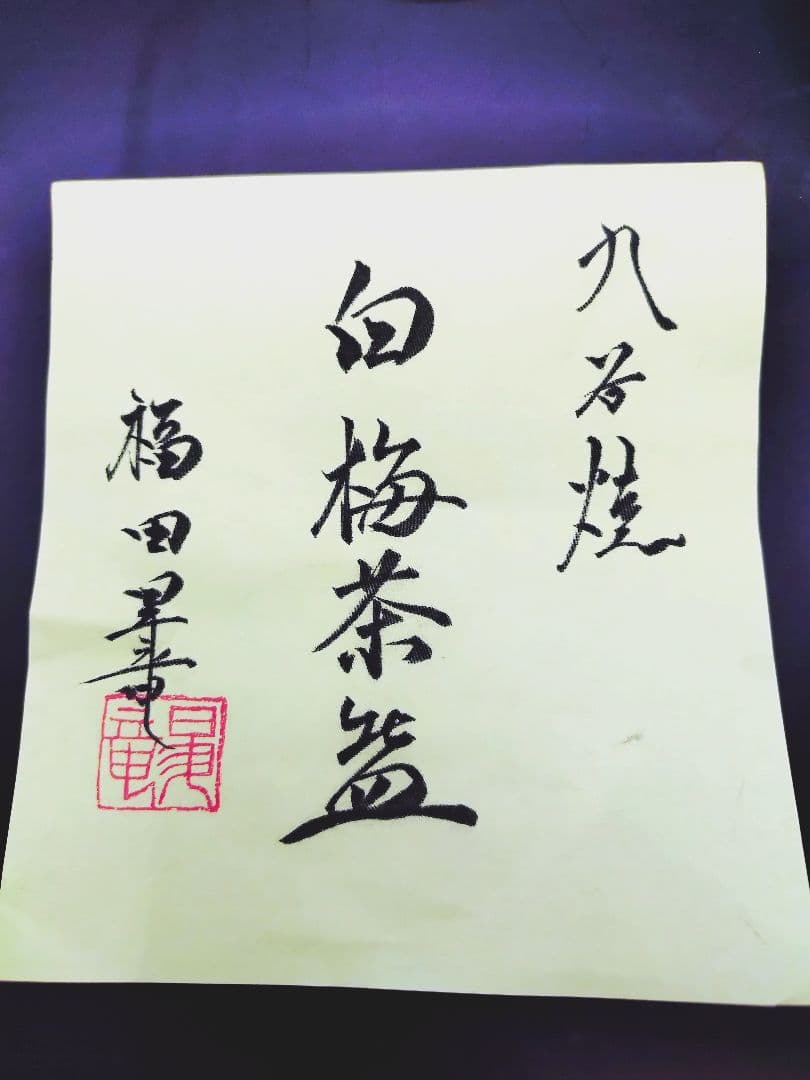 九谷焼
白梅茶盌
福田